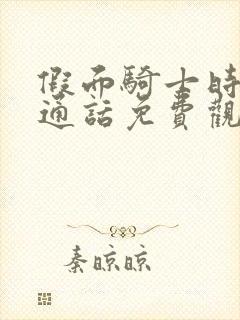 假面騎士時
通話免費觀
秦晾晾